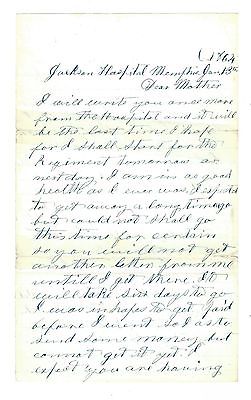 1864
Jackson Hospital Memphis Jan 13th
Dear Mother
I will write you once more
from the Hospital and it will
be the last time I hope
for I shall start for the
Regiment tomorrow or
next day. I am in as good
health as I ever was. I expected
to get away a long time ago
but could not shall go
this time for certain
so you will not get
another letter from me
untill I get there. It
will take six days to go
I was in hopes to get paid
before I went so I as to
send some money but
cannot get it yet. I
expect you are having